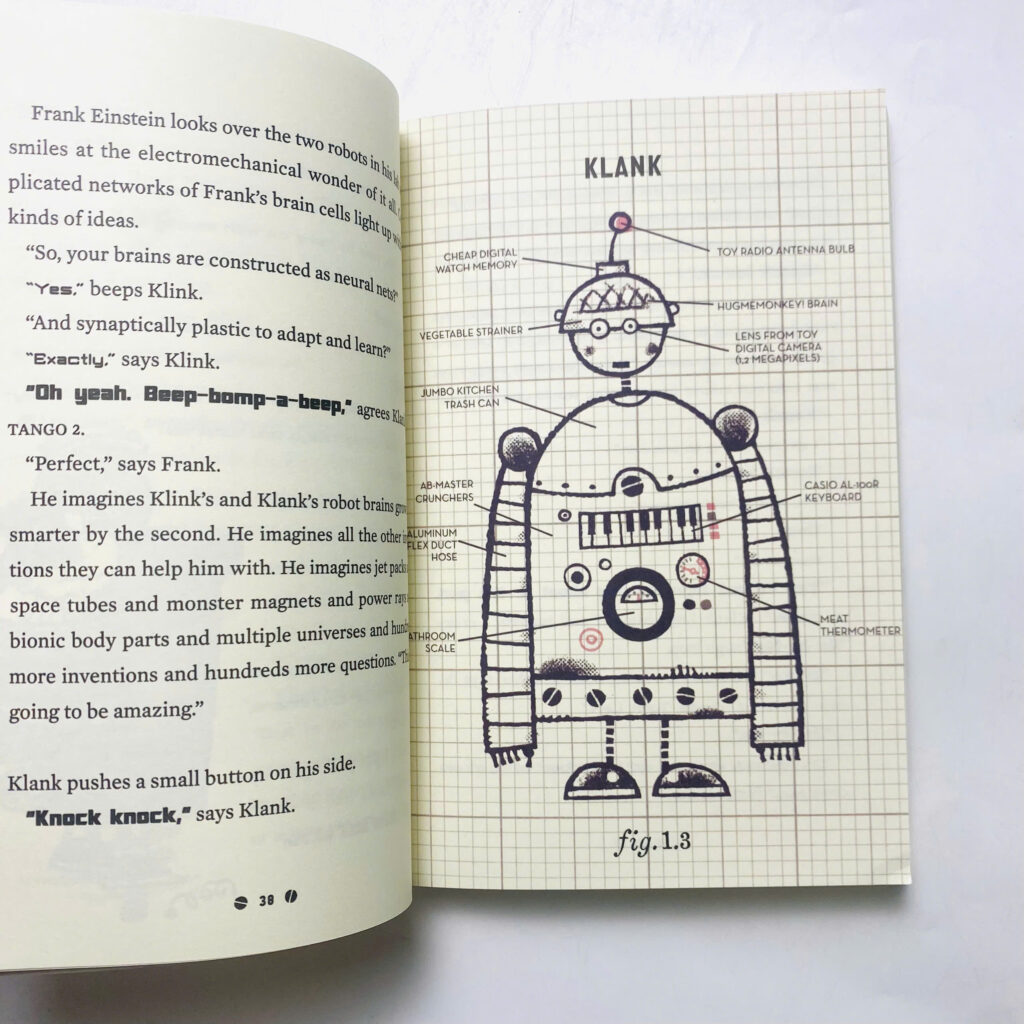 Frank Einstein looks over the two robots in his
smiles at the electromechanical wonder of it all.
plicated networks of Frank's brain cells light up
kinds of ideas.
"So, your brains are constructed as neural nets?"
"Yes," beeps Klink.
"And synaptically plastic to adapt and learn?"
"Exactly," says Klink.
"Oh yeah. Beep-bomp-a-beep," agrees
TANGO 2.
"Perfect," says Frank.
He imagines Klink's and Klank's robot brains
smarter by the second. He imagines all the other
tions they can help him with. He imagines jet packs
space tubes and monster magnets and power rays
bionic body parts and multiple universes and
more inventions and hundreds more questions.
going to be amazing."
Klank pushes a small button on his side.
"Knock knock," says Klank.
38
KLANK
CHEAP DIGITAL
WATCH MEMORY
TOY RADIO ANTENNA BULB
HUGMEMONKEY! BRAIN
VEGETABLE STRAINER
LENS FROM TOY
DIGITAL CAMERA
(1.2 MEGAPIXELS)
JUMBO KITCHEN
TRASH CAN
AB-MASTER
CRUNCHERS
CASIO AL-100R
KEYBOARD
ALUMINUM
FLEX DUCT
HOSE
MEAT
THERMOMETER
SCALE
fig. 1.3